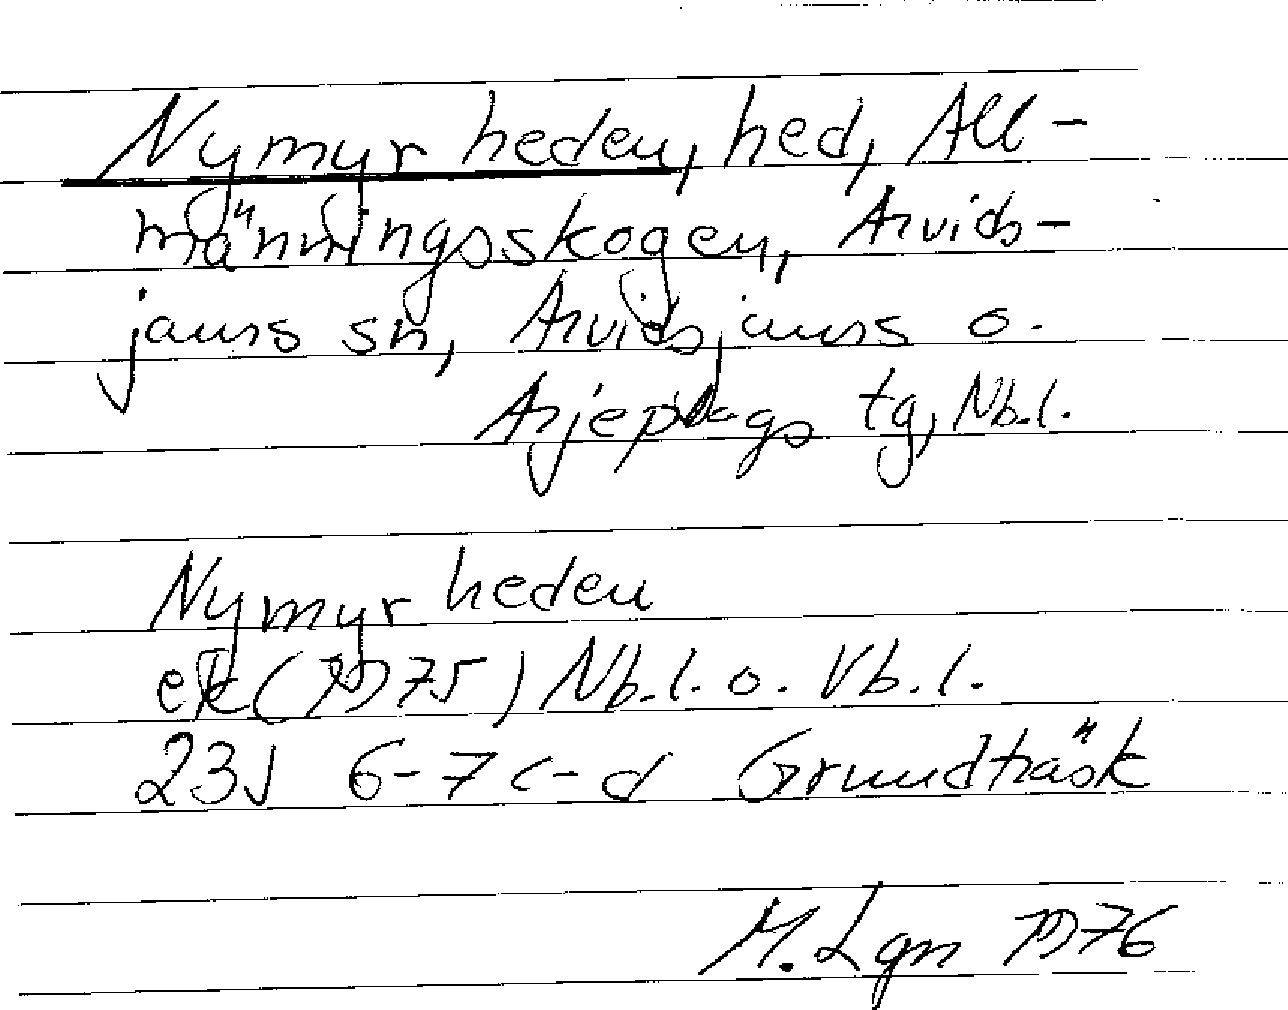 Nymyrheden, hed, All-
männingsskogen, Arvids-
jaurs sn, Arvidsjaurs o.
Arjeplogs tg, Nb.l.
Nymyrheden
ek (1975) Nb.l. o. Vb.l.
23J 6-7 c-d Grundträsk
M. Lgn 1976